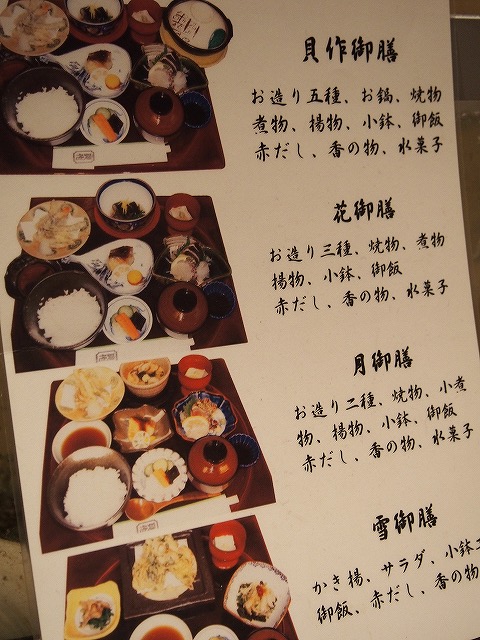 貝作御膳
お造り五種、お鍋、焼物
煮物、揚物、小鉢、御飯
赤だし、香の物、水菓子
花御膳
お造り三種、焼物、煮物
揚物、小鉢、御飯
赤だし、香の物、水菓子
月御膳
お造り二種、焼物、小煮
物、揚物、小鉢、御飯
赤だし、香の物、水菓子
雪御膳
かき揚、サラダ、小鉢
御飯、赤だし、香の物